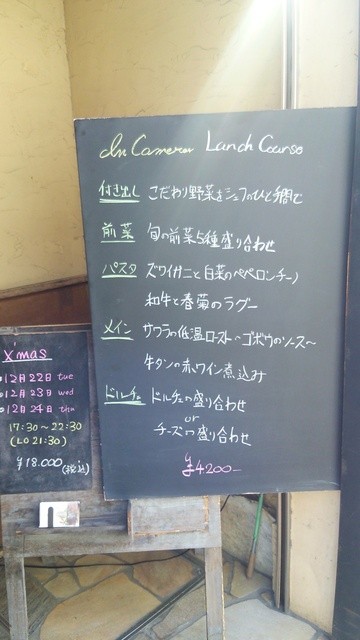 In Camera Lunch Course
付き出し こだわり野菜をシェフのひと手間で
前菜 旬の前菜5種盛り合わせ
パスタ ズワイガニと白菜のペペロンチーノ
和牛と春菊のラグー
メイン サワラの低温ロースト〜ゴボウのソース〜
牛タンの赤ワイン煮込み
ドルチェ ドルチェの盛り合わせ
or
チーズの盛り合わせ
¥4200-
X'mas
12月22日 tue
12月23日 wed
12月24日 thu
17:30〜22:30
(LO 21:30)
¥18.000(税込)